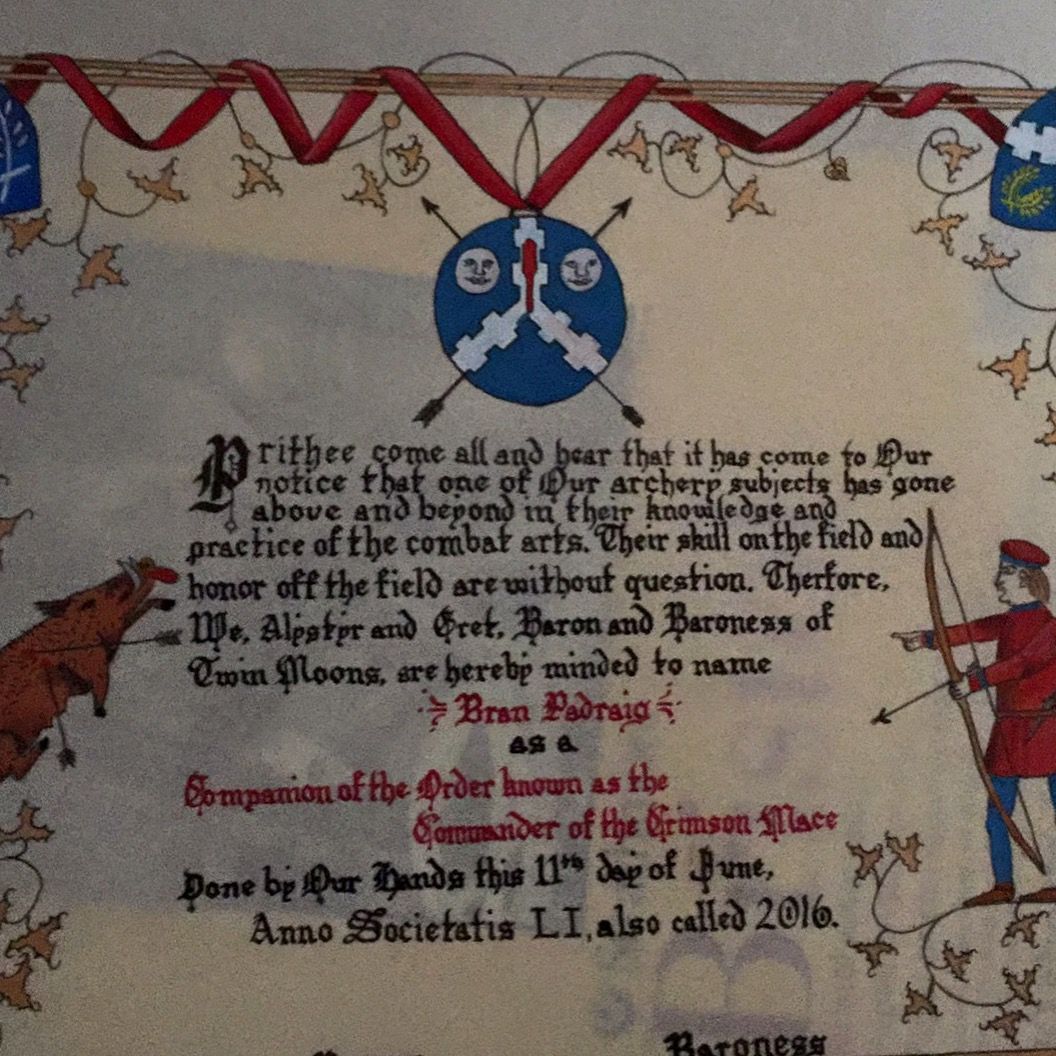 Prithee come all and hear that it has come to Our
notice that one of Our archery subjects has gone
above and beyond in their knowledge and
practice of the combat arts. Their skill on the field and
honor off the field are without question. Therfore,
We, Alystyr and Gret, Baron and Baroness of
Twin Moons, are hereby minded to name
Bran Padraig
as a
Companion of the Order known as the
Commander of the Crimson Mace
Done by Our Hands this 11th day of June,
Anno Societatis LI, also called 2016.
Baroness